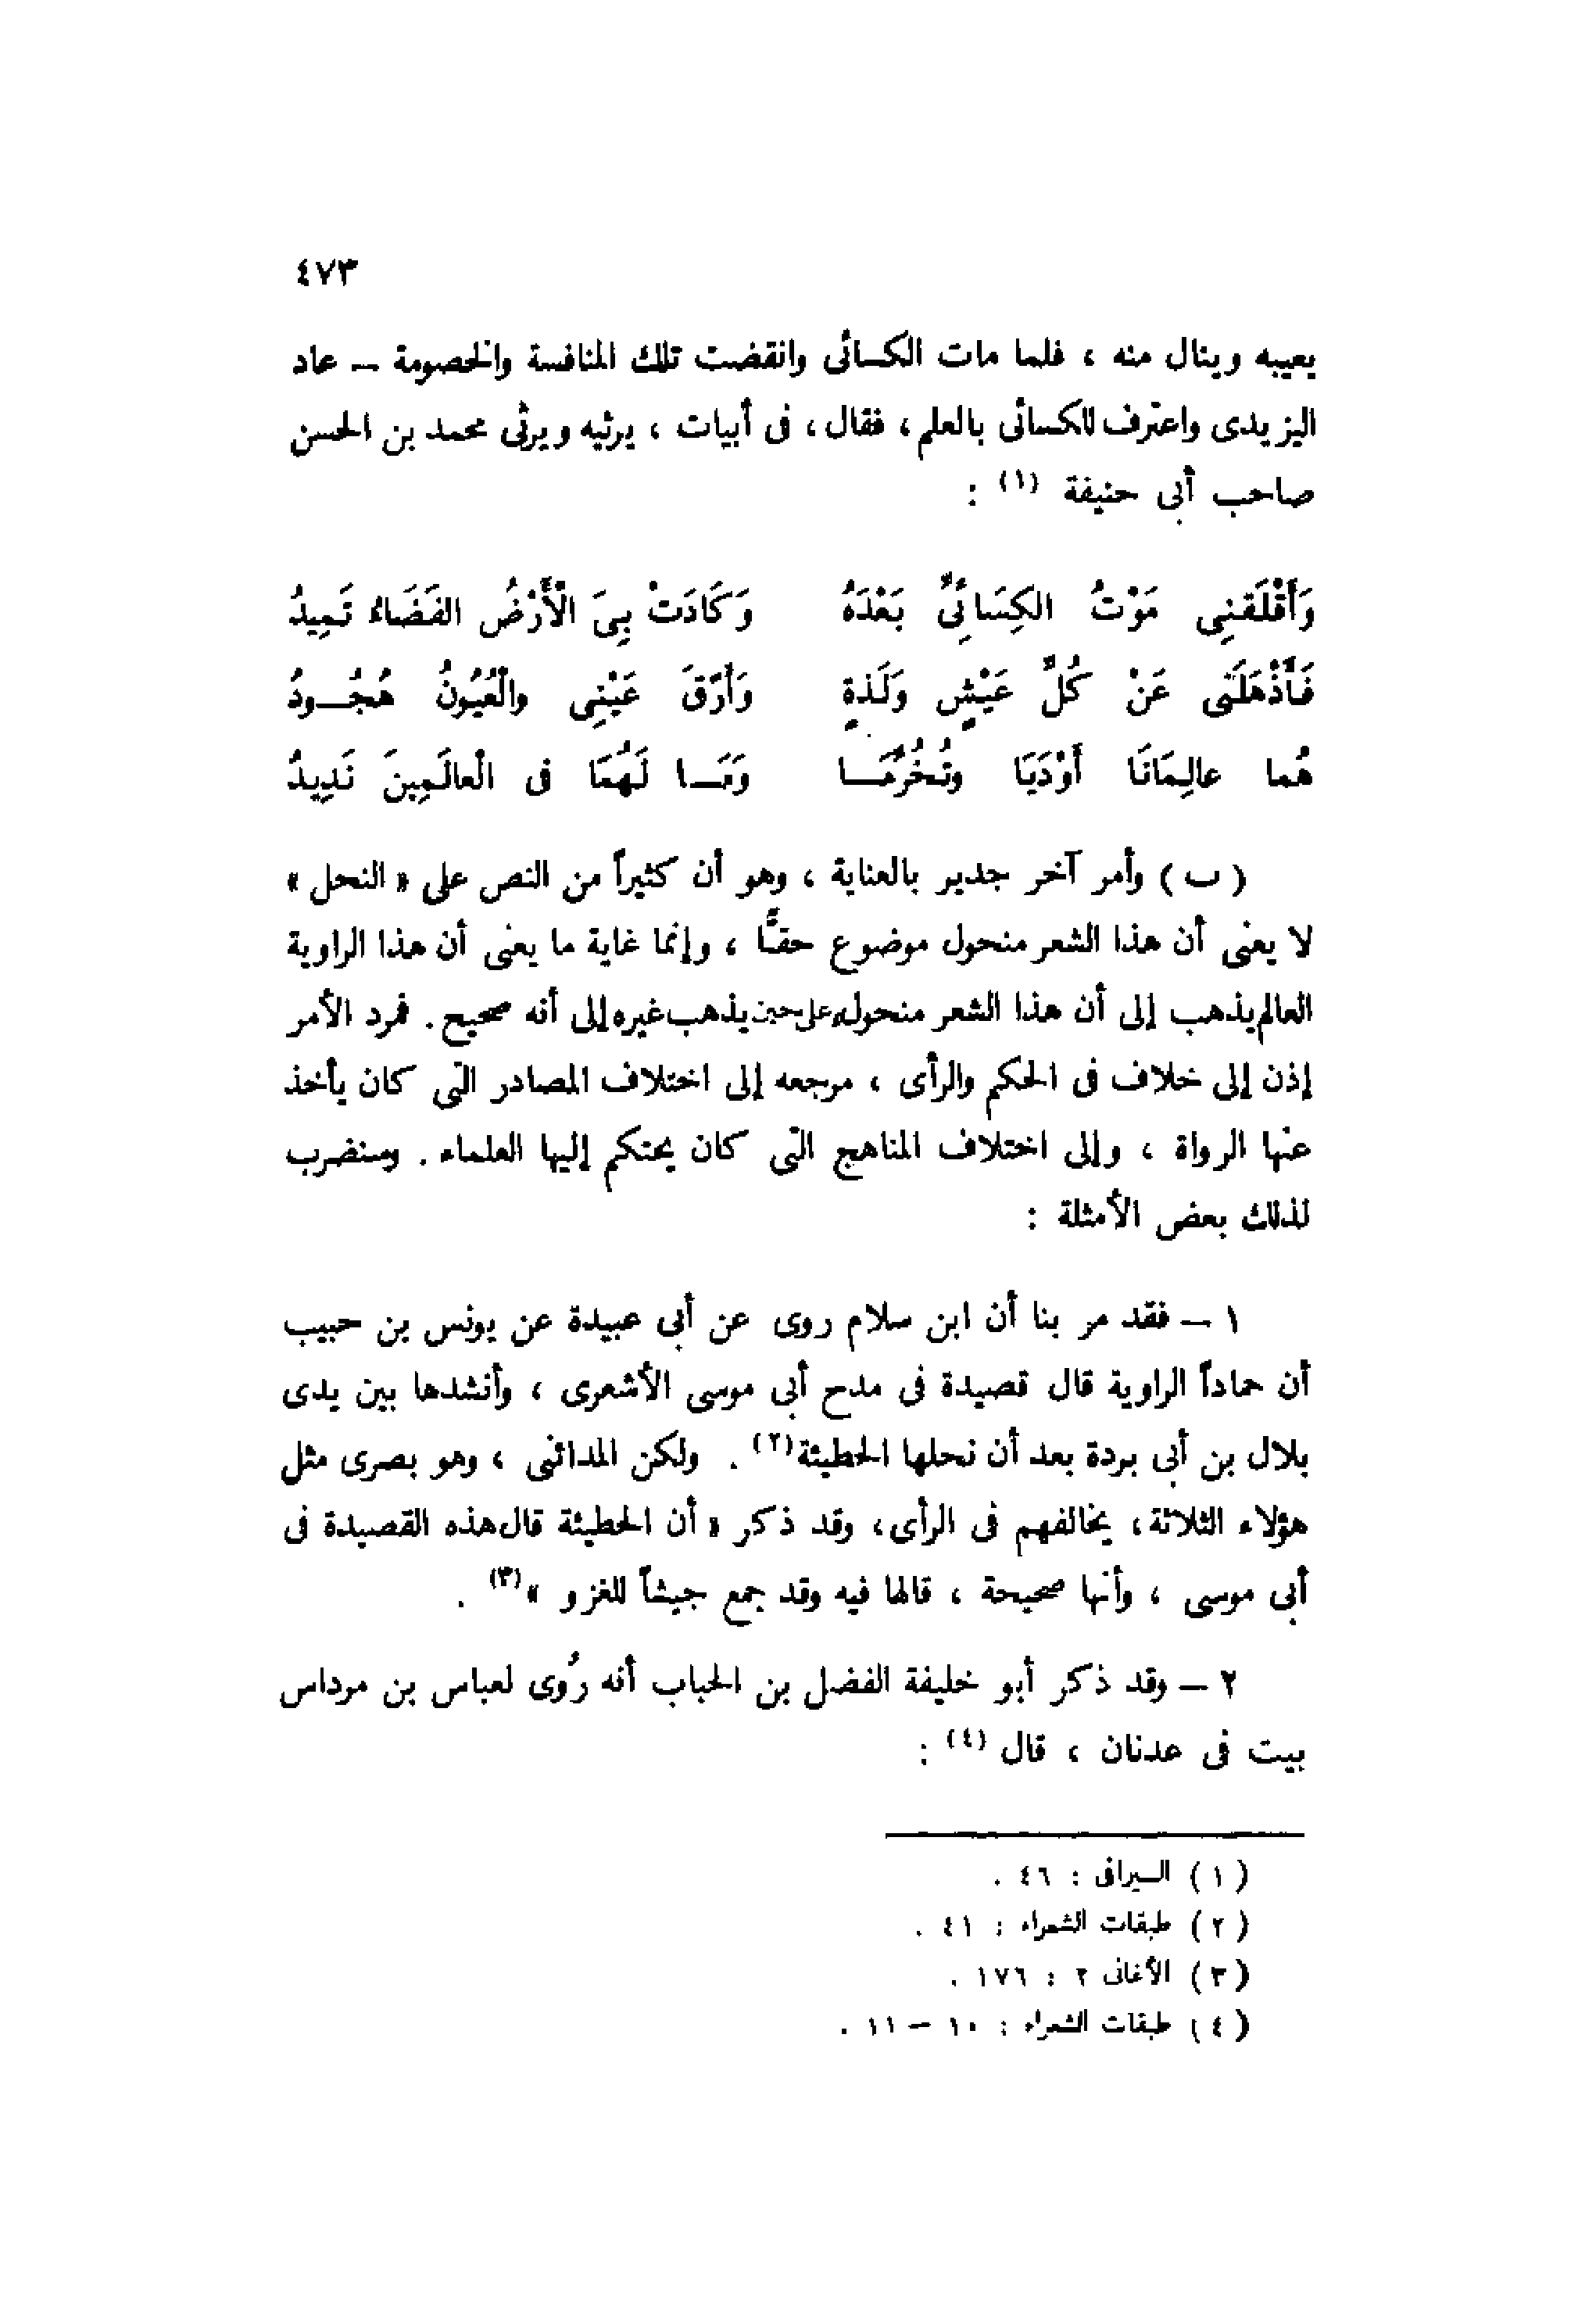 ٤٧٣
يعيبه وينال منه ، فلما مات الكسائى وانقضت تلك المنافسة والخصومة – عاد
اليزيدى واعترف للكسائى بالعلم ، فقال ، فى أبيات ، يرثيه ويرثى محمد بن الحسن
صاحب أبى حنيفة (١) :
وَأَقْلَقَنِى مَوْتُ الكِسَائِىِّ بَعْدَهُ وَكَادَتْ بِىَ الْأَرْضُ الفَضَاءُ تَمِيدُ
فَأَذْهَلَنى عَنْ كُلِّ عَيْشٍ وَلَذةٍ وَأَرَّقَ عَيْنِى والْعُيُونُ هُجُـودُ
هُما عالِمَانَا أَوْدَيَا وتُخُرِّمَـا وَمَـا لَهُمَا فى الْعالَمِينَ نَدِيدُ
( ب ) وأمر آخر جدير بالعناية ، وهو أن كثيراً من النص على « النحل »
لا يعنى أن هذا الشعر منحول موضوع حقًّا ، وإنما غاية ما يعنى أن هذا الراوية
العالم يذهب إلى أن هذا الشعر منحول، على حين يذهب غيره إلى أنه صحيح . فمرد الأمر
إذن إلى خلاف فى الحكم والرأى ، مرجعه إلى اختلاف المصادر التى كان يأخذ
عنها الرواة ، وإلى اختلاف المناهج التى كان يحتكم إليها العلماء . وسنضرب
لذلك بعض الأمثلة :
١ – فقد مر بنا أن ابن سلام روى عن أبى عبيدة عن يونس بن حبيب
أن حماداً الراوية قال قصيدة فى مدح أبى موسى الأشعرى ، وأنشدها بين يدى
بلال بن أبى بردة بعد أن نحلها الحطيئة (٢) . ولكن المدائنى ، وهو بصرى مثل
هؤلاء الثلاثة ، يخالفهم فى الرأى ، وقد ذكر « أن الحطيئة قال هذه القصيدة فى
أبى موسى ، وأنها صحيحة ، قالها فيه وقد جمع جيشاً للغزو » (٣) .
٢ – وقد ذكر أبو خليفة الفضل بن الحباب أنه رُوى لعباس بن مرداس
بيت فى عدنان ، قال (٤) :
( ١ ) السيرافى : ٤٦ .
( ٢ ) طبقات الشعراء : ٤١ .
( ٣ ) الأغانى ٢ : ١٧٦ .
( ٤ ) طبقات الشعراء : ١٠ – ١١ .